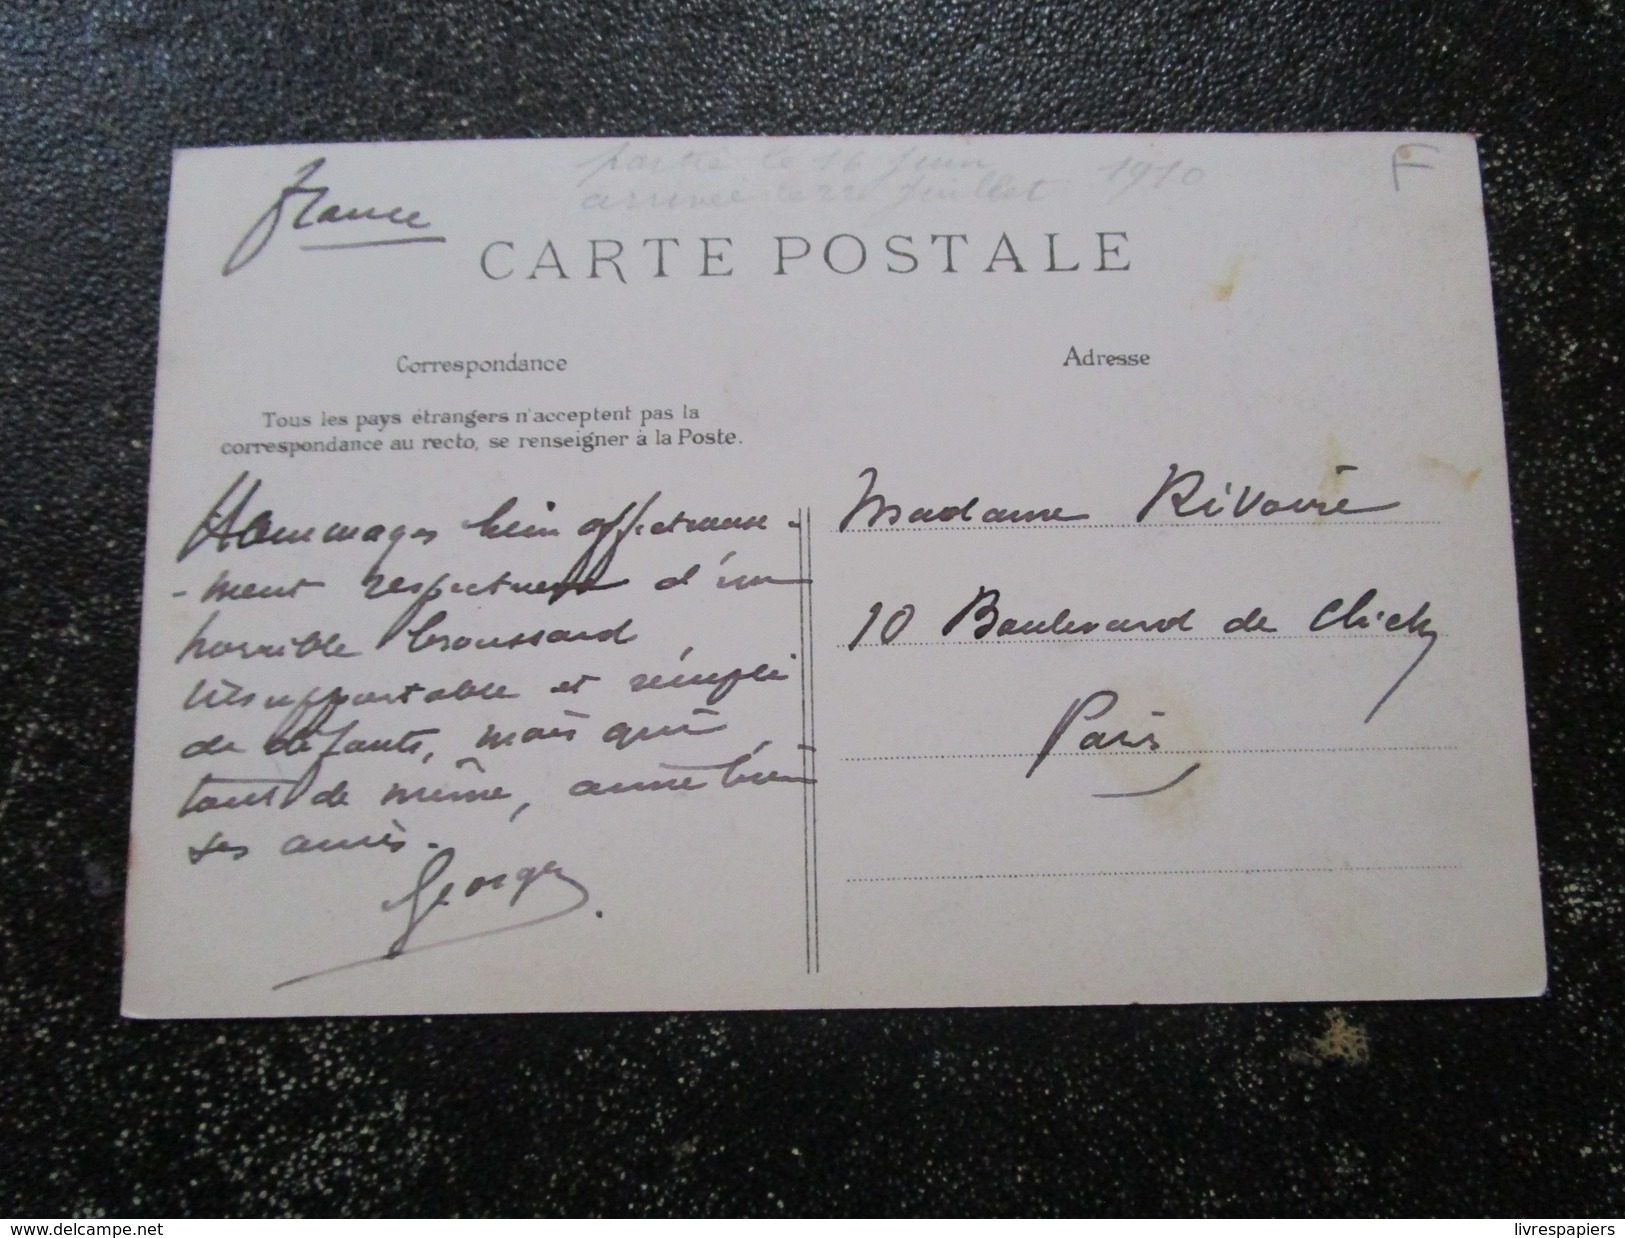 partie le 16 juin 1910
arrivée le 22 juillet
F
France
CARTE POSTALE
Correspondance
Adresse
Tous les pays étrangers n'acceptent pas la
correspondance au recto, se renseigner à la Poste.
Hommages bien affectueuse-
-ment respectueux d'un
horrible broussard
insupportable et rempli
de défauts, mais qui
tout de même, aime bien
ses amis.
Georges
Madame Rivoire
10 Boulevard de Clichy
Paris
www.delcampe.net
livrespapiers